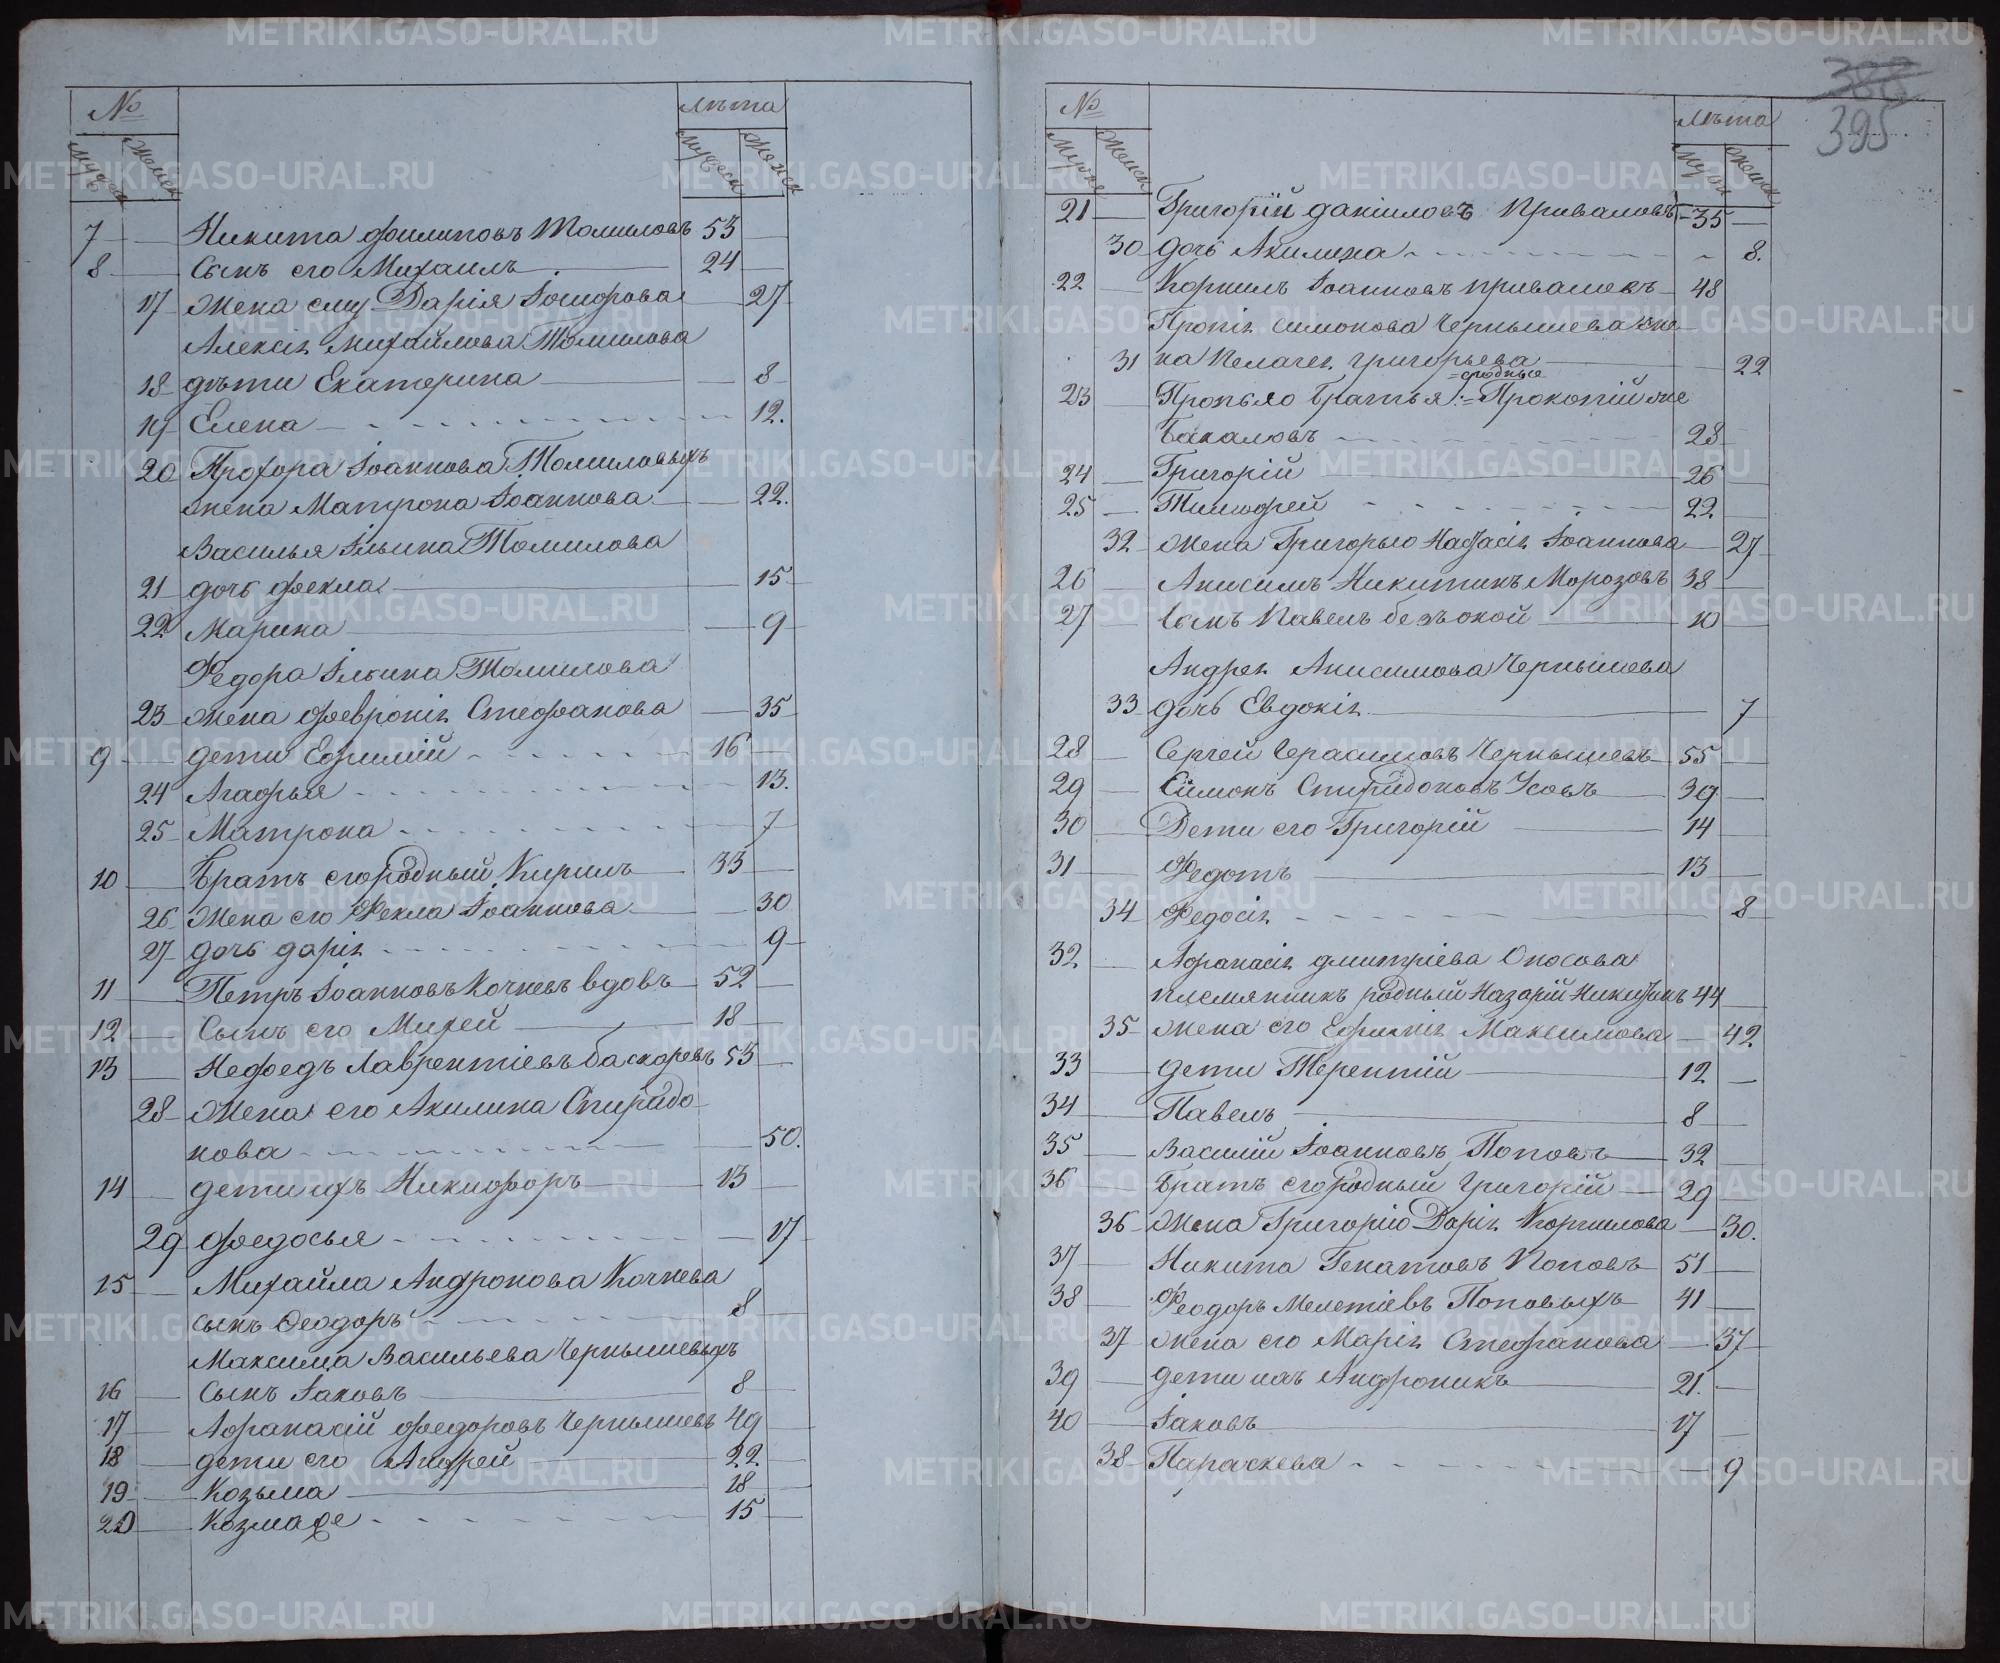 № Лѣта
Мужеск Женск Мужеск Женск
7 Никита Филиповъ Томиловъ 53
8 Сынъ его Михаилъ 24
17 Жена ему Дарія Ѳомирова 27
Алексія Михайлова Томилова
18 дѣти Екатерина 8
19 Елена 12.
20 Прохора Іоаннова Томиловыхъ
жена Матрона Іоаннова 22.
Василья Ильина Томилова
21 дочь Фекла 15
22 Марина 9
Федора Ильина Томилова
23 Жена Февронія Стефанова 35
9 дети Ефимій 16
24 Агафья 13.
25 Матрона 7
10 Братъ егородный Кирилъ 33
26 Жена его Фекла Іоаннова 30
27 дочь дарія 9
11 Петръ Іоанновъ Кочневъ вдовъ 52
12 Сынъ его Михей 18
13 Нефедъ Лаврентіевъ баскоревъ 53
28 Жена его Акилина Спиридо
нова 50.
14 дети ихъ Никифоръ 13
29 Федосья 17
15 Михайла Андронова Кочнева
сынъ Феодоръ 8
Максима Васильева Чернышевыхъ
16 Сынъ Іаковъ 8
17 Афанасій Федоровъ Чернышевъ 49
18 дети его Андрей 22
19 Козьма 18
20 Козмаже 15
388
395
№ Лѣта
Мужск Женск Мужск Женск
21 Григорій даниловъ Приваловъ 35
30 дочь Акилина 8.
22 Корнилъ Іоанновъ приваловъ 48
Пропія симонова Чернышева же
31 на Пелагея григорьева 22
=сродные
23 Пропьяо братья:=Прокопій же
Бакаловъ 28
24 Григорій 26
25 Тимофей 22
32 Жена Григорью Настасія Іоаннова 27
26 Анисимъ Никитинъ Морозовъ 38
27 Сынъ Павелъ безъокой 10
Андрея Анисимова Чернышева
33 дочь Евдокія 7
28 Сергей Герасимовъ Чернышевъ 55
29 Симонъ Спиридоновъ Усовъ 39
30 Дети его Григорій 14
31 Федотъ 13
34 Федосія 8
32 Афанасія дмитріева Оносова
племянникъ родный Назарій Никитинъ 44
35 Жена его Ефимія Максимова 42
33 дети Терентій 12
34 Павелъ 8
35 Василій Іоанновъ Поповъ 32
36 Братъ егородный Григорій 29
36 Жена Григорію Дарія Корнилова 30.
37 Никита Гекатовъ Поповъ 51
38 Феодоръ Мелетіевъ Поповыхъ 41
37 Жена его Марія Стефанова 37
39 дети ихъ Андроникъ 21.
40 Іаковъ 17
38 Параскева 9
METRIKI.GASO-URAL.RU